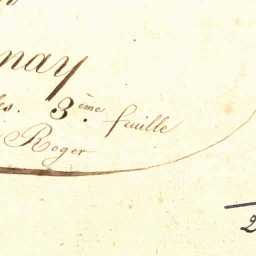 nay
les. 3.ème feuille
Roger
2